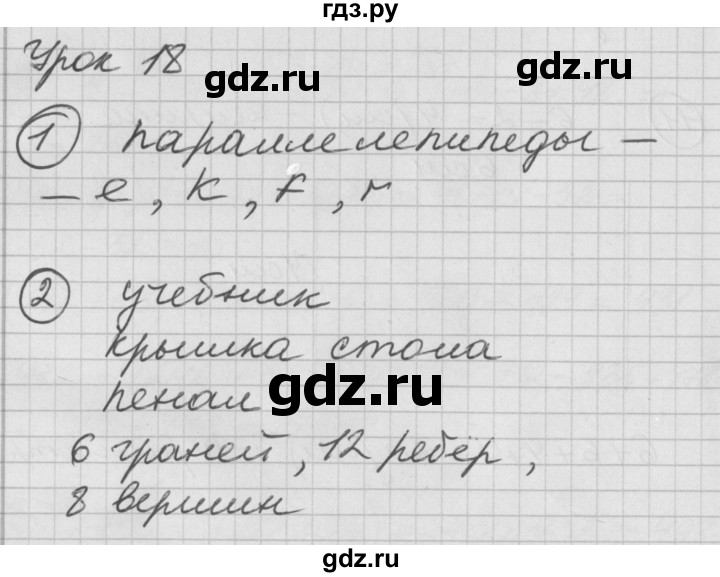 гдз.ру
Урок 18
gdz.ru
gdz.ru
1 параллелепипеды –
– е, к, f, r
2 учебник
крышка стола
пенал
gdz.ru
6 граней, 12 ребер,
8 вершин
gdz.ru
gdz.ru